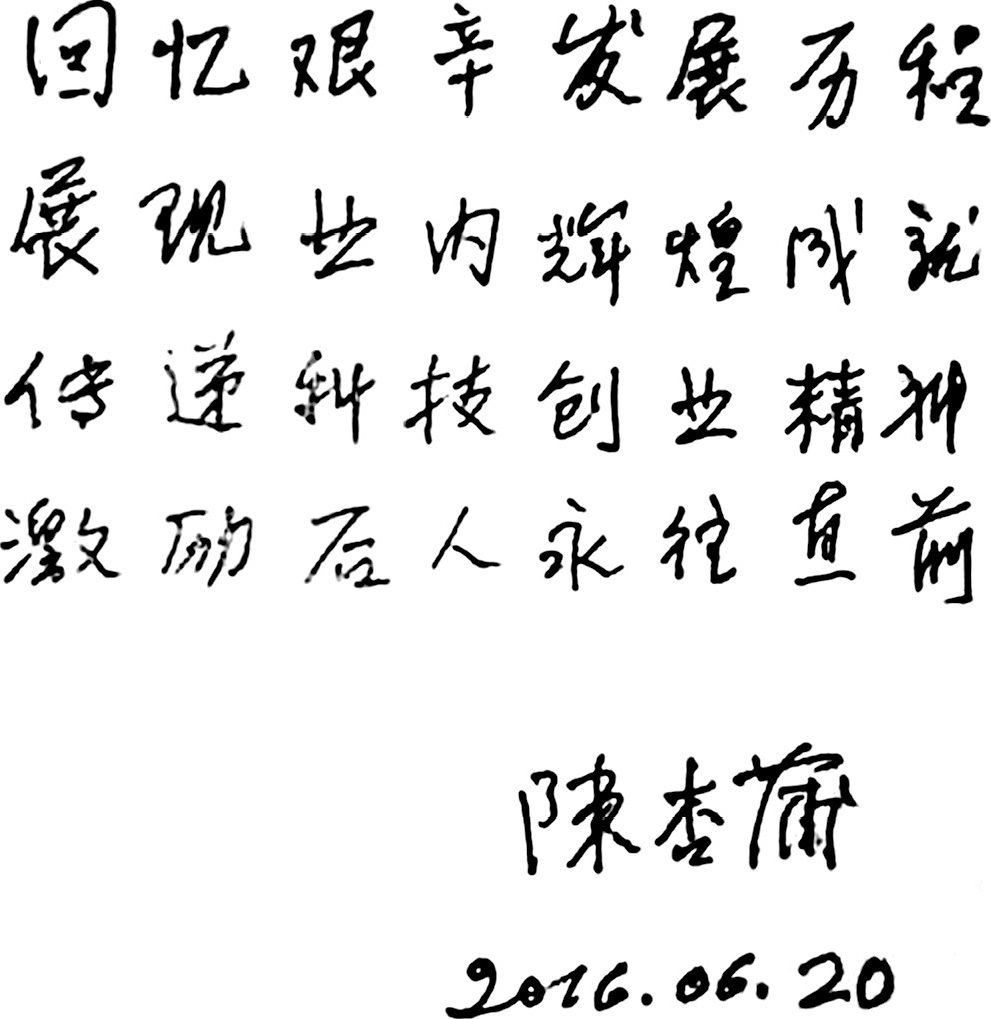 回忆艰辛发展历程
展现业内辉煌成就
传递科技创业精神
激励后人永往直前
陳杏蒲
2016.06.20